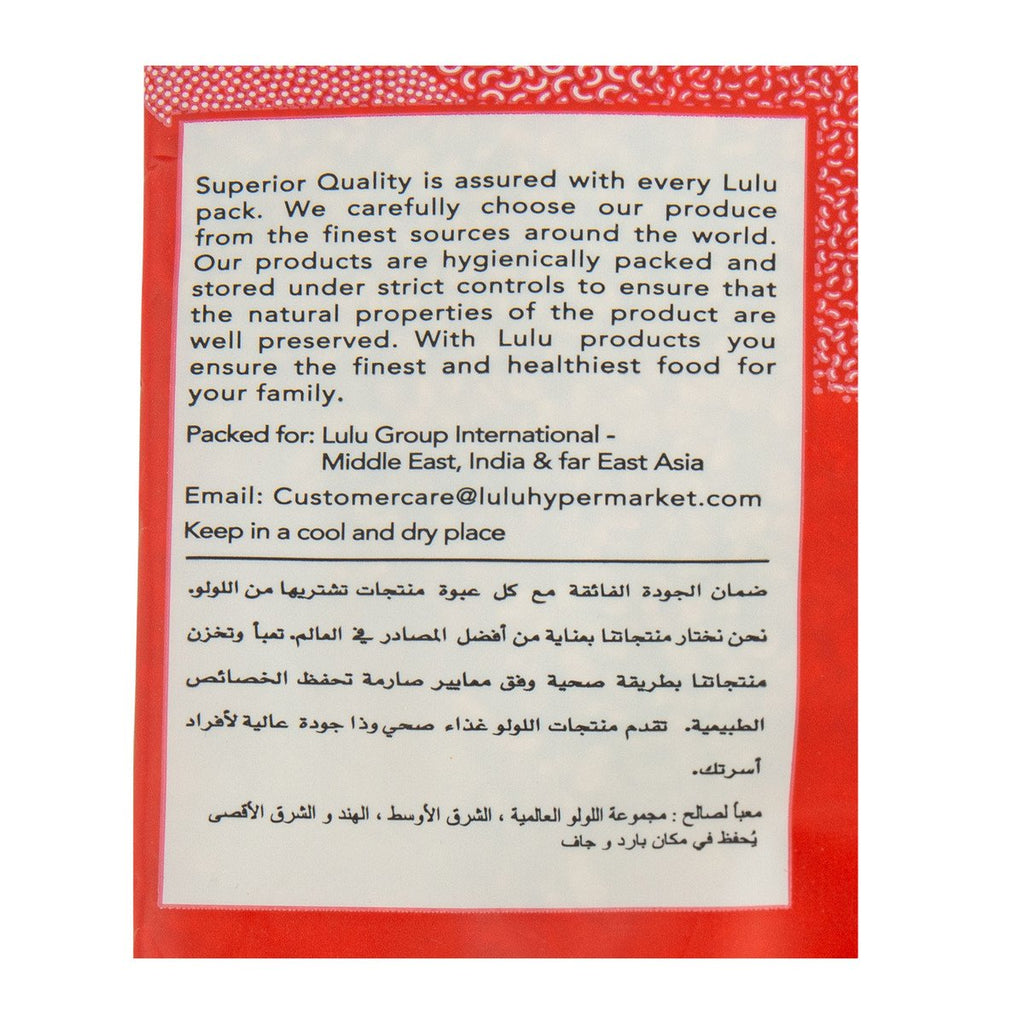 Superior Quality is assured with every Lulu
pack. We carefully choose our produce
from the finest sources around the world.
Our products are hygienically packed and
stored under strict controls to ensure that
the natural properties of the product are
well preserved. With Lulu products you
ensure the finest and healthiest food for
your family.
Packed for: Lulu Group International -
Middle East, India & far East Asia
Email: Customercare@luluhypermarket.com
Keep in a cool and dry place
ضمان الجودة الفائقة مع كل عبوة منتجات تشتريها من اللولو.
نحن نختار منتجاتنا بعناية من أفضل المصادر في العالم. تعبأ وتخزن
منتجاتنا بطريقة صحية وفق معايير صارمة تحفظ الخصائص
الطبيعية. تقدم منتجات اللولو غذاء صحي وذا جودة عالية لأفراد
أسرتك.
معبأ لصالح : مجموعة اللولو العالمية ، الشرق الأوسط ، الهند و الشرق الأقصى
يُحفظ في مكان بارد و جاف